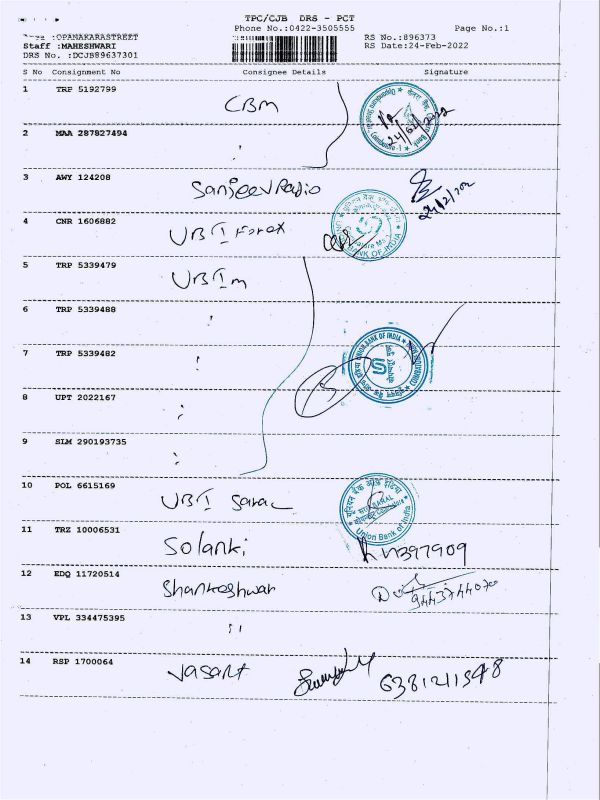 TPC/CJB DRS - PCT
Phone No.:0422-3505555 Page No.:1
:OPANAKARASTREET RS No.:896373
Staff :MAHESHWARI RS Date:24-Feb-2022
DRS No. :DCJB89637301
S No Consignment No Consignee Details Signature
1 TRP 5192799 CBM
24/02/2022
2 MAA 287827494 :
3 AWY 124208 Sanjeev Radio 24/2/202
4 CNR 1606882 UBI Forex
BANK OF INDIA
5 TRP 5339479 UBI m
6 TRP 5339488 :
UNION BANK OF INDIA
7 TRP 5339482 :
8 UPT 2022167 :
9 SLM 290193735 :
10 POL 6615169 UBI Sarac
यूनियन बैंक ऑफ इंडिया
Union Bank of India
11 TRZ 10006531 Solanki
12 EDQ 11720514 Shankeshwar 9443744070
13 VPL 334475395 :
14 RSP 1700064 Vasant 6381211548